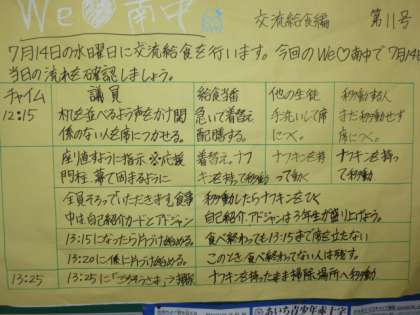 We♡南中
交流給食編 第11号
7月14日の水曜日に交流給食を行います。今回のWe♡南中で7月14
当日の流れを確認しましょう。
チャイム 議員 給食当番 他の生徒 移動する人
12:15 机を並べるよう声をかけ関 急いで着替え 手洗いして席 まだ移動せず
係のない人を席につかせる。 配膳する。 につく。 席につく。
座り直すように指示 応援 着替え、ナフ ナフキンを持 ナフキンを持っ
門柱、幕で固まるように キンを持って移動 って働く て移動
全員そろっていただきます。食事 移動したらナフキンをひく
中は自己紹介カードとアドジャン 自己紹介、アドジャンは3年生が盛り上げよう。
13:15になったら片づけ始める。 食べ終わっても13:15まで席を立たない
13:20に僕に片づけ始める このとき食べ終わってない人は残す。
13:25 13:25に「ごちそうさま」 ナフキンを持ったまま掃除場所へ移動
あいち青少年赤十字